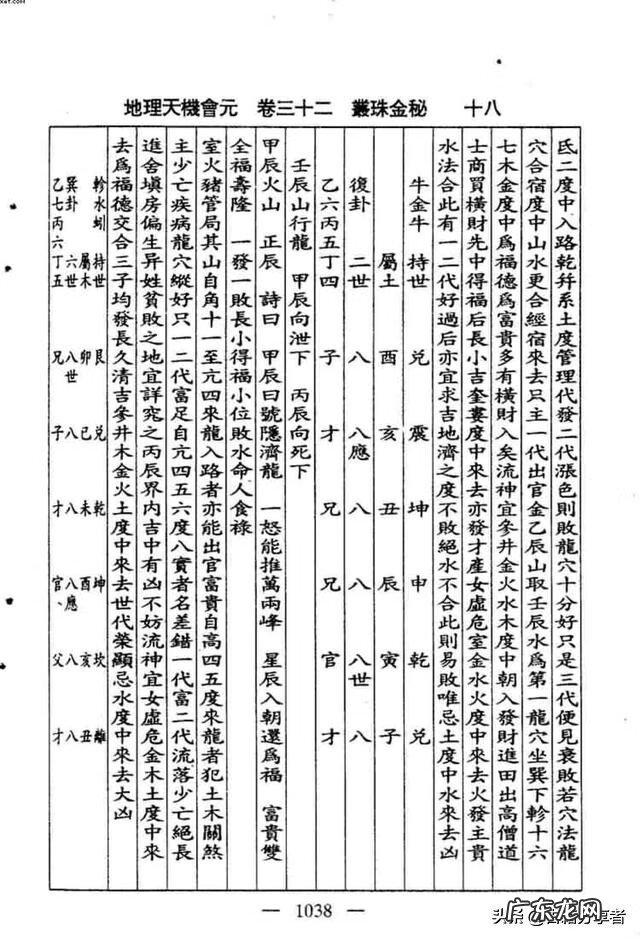 xet.com
地理天機會元 卷三十二 叢珠金秘 十八
氐二度中入路乾幷系土度管理代發二代漲色則敗龍穴十分好只是三代便見衰敗若穴法龍
穴合宿度中山水更合經宿來去只主一代出官金乙辰山取壬辰水為第一龍穴坐巽下軫十六
七木金度中爲福德爲富貴多有橫財入矣流神宜參井金火水木度中朝入發財進田出高僧道
士商買橫財先中得福后長小吉奎婁度中來去亦發才產女虛危室金水火度中來去火發主貴
水法合此有一二代好過后亦宜求吉地濟之度不敗絕水不合此則易敗唯忌土度中水來去凶
牛金牛 持世 兌 震 坤 申 乾 兌
屬土 酉 亥 丑 辰 寅 子
復卦 二世 八 八應 八 八 八世 八
乙六丙五丁四 子 才 兄 兄 官 才
壬辰山行龍 甲辰向泄下 丙辰向死下
甲辰火山 正辰 詩曰 甲辰曰號隱濟龍 一怒能推萬兩峰 星辰入朝還爲福 富貴雙
全福壽隆 一發一敗長小得福小位敗水命人食祿
室火豬管局其山自角十一至亢四來龍入路者亦能出官富貴自高四五度來龍者犯土木關煞
主少亡疾病龍穴縱好只一二代富足自亢四五六度八實者名差錯一代富二代流落少亡絕長
進舍填房偏生异姓貧敗之地宜詳究之丙辰界内吉中有凶不妨流神宜女虛危金木土度中來
去爲福德交合三子均發長久清吉參井木金火土度中來去世代榮顯忌水度中來去大凶
軫水蚓 持世 艮 兌 乾 坤 坎 離
屬木 卯 巳 未 酉 亥 丑
巽卦 六世 八世 八 八 八應 八 八
乙七丙六丁五 兄 子 才 官、 父 才
— 1038 —
广东龙网